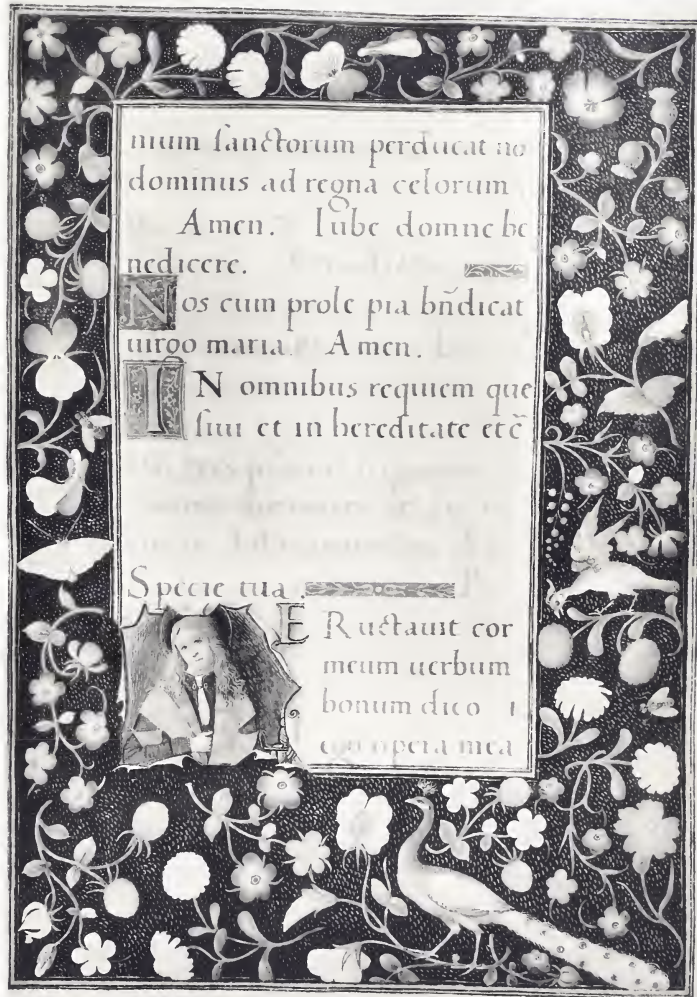 nium sanctorum perducat no
dominus ad regna celorum
Amen. Iube domne be
nedicere.
Nos cum prole pia bñdicat
uirgo maria. Amen.
IN omnibus requiem que
siui et in hereditate etc̃
Specie tua.
ERuctauit cor
meum uerbum
bonum dico
ego opera mea